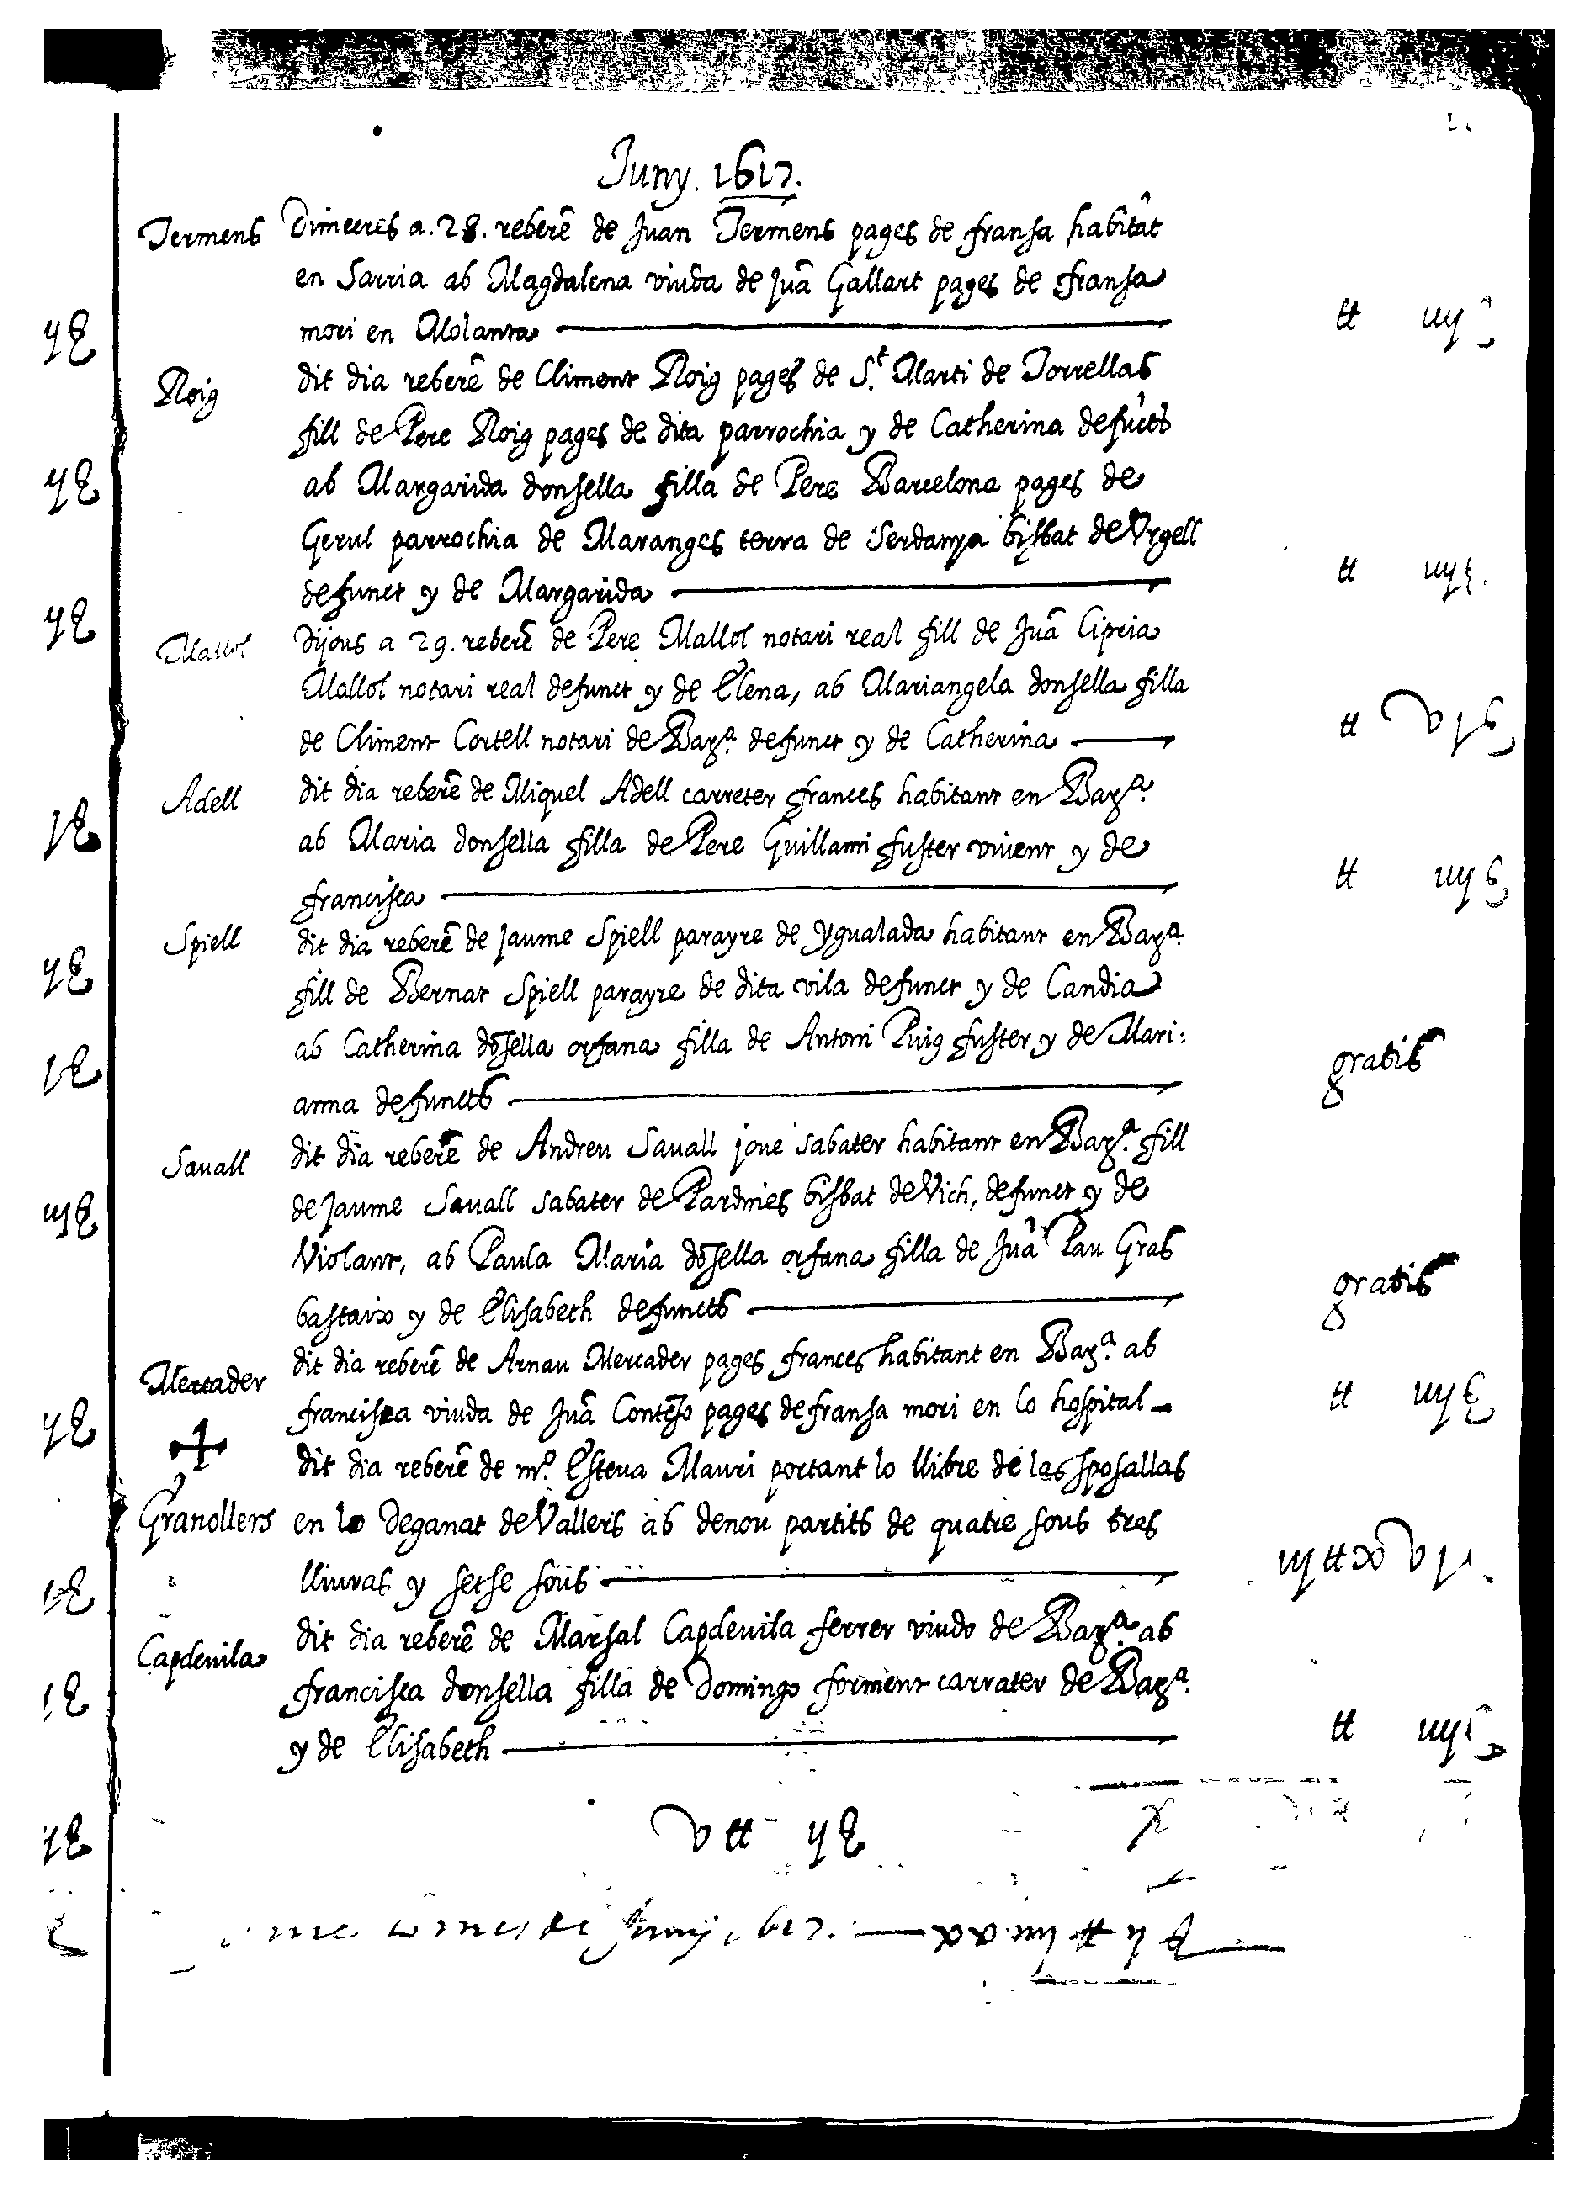 Juny. 1617.
Termens Dimecres a. 28. reberē de Juan Termens pages de fransa habitāt
en Sarria ab Magdalena viuda de Juā Gallart pages de fransa
mori en Molanra tt iiij s
Roig dit dia reberē de Climent Roig pages de S.t Marti de Torrellas
fill de Pere Roig pages de dita parrochia y de Catherina defūcts
ab Margarida donsella filla de Pere Barcelona pages de
Gerul parrochia de Maranges terra de Serdanya bisbat de Vrgell
defunct y de Margarida tt iiij s.
Mallol Dijous a 29. reberē de Pere Mallol notari real fill de Juā Cipria
Mallol notari real defunct y de Elena, ab Mariangela donsella filla
de Climent Cortell notari de Barᵃ. defunct y de Catherina tt
Adell dit dia reberē de Miquel Adell carreter frances habitant en Barᵃ.
ab Maria donsella filla de Pere Guillami fuster vivent y de
francisca tt iiij s
Spiell dit dia reberē de Jaume Spiell parayre de Ygualada habitant en Barᵃ.
fill de Bernat Spiell parayre de dita vila defunct y de Candia
ab Catherina dōsella orfana filla de Antoni Puig fuster y de Mari:
anna defuncts gratis
Sauall dit dia reberē de Andreu Sauall joue sabater habitant en Barᵃ. fill
de Jaume Sauall sabater de Pardines bisbat de Vich, defunct y de
Violant, ab Paula Maria dōsella orfana filla de Juā Pau Gras
bastaix y de Elisabeth defuncts gratis
Mercader dit dia reberē de Arnau Mercader pages frances habitant en Barᵃ. ab
francisca viuda de Juā Contēso pages de fransa mori en lo hospital tt iiij s
Granollers dit dia reberē de mº. Esteua Mauri portant lo llibre de las sposallas
en lo Deganat de Valleris ab denou partits de quatre sous tres
lliuras y setse sous iij tt xvj
Capdeuila dit dia reberē de Marsal Capdeuila ferrer viudo de Barᵃ. ab
francisca donsella filla de Domingo forment carrater de Barᵃ.
y de Elisabeth tt iiij s
v tt ij s
mes de Juny 1617. xxiiij tt ij s